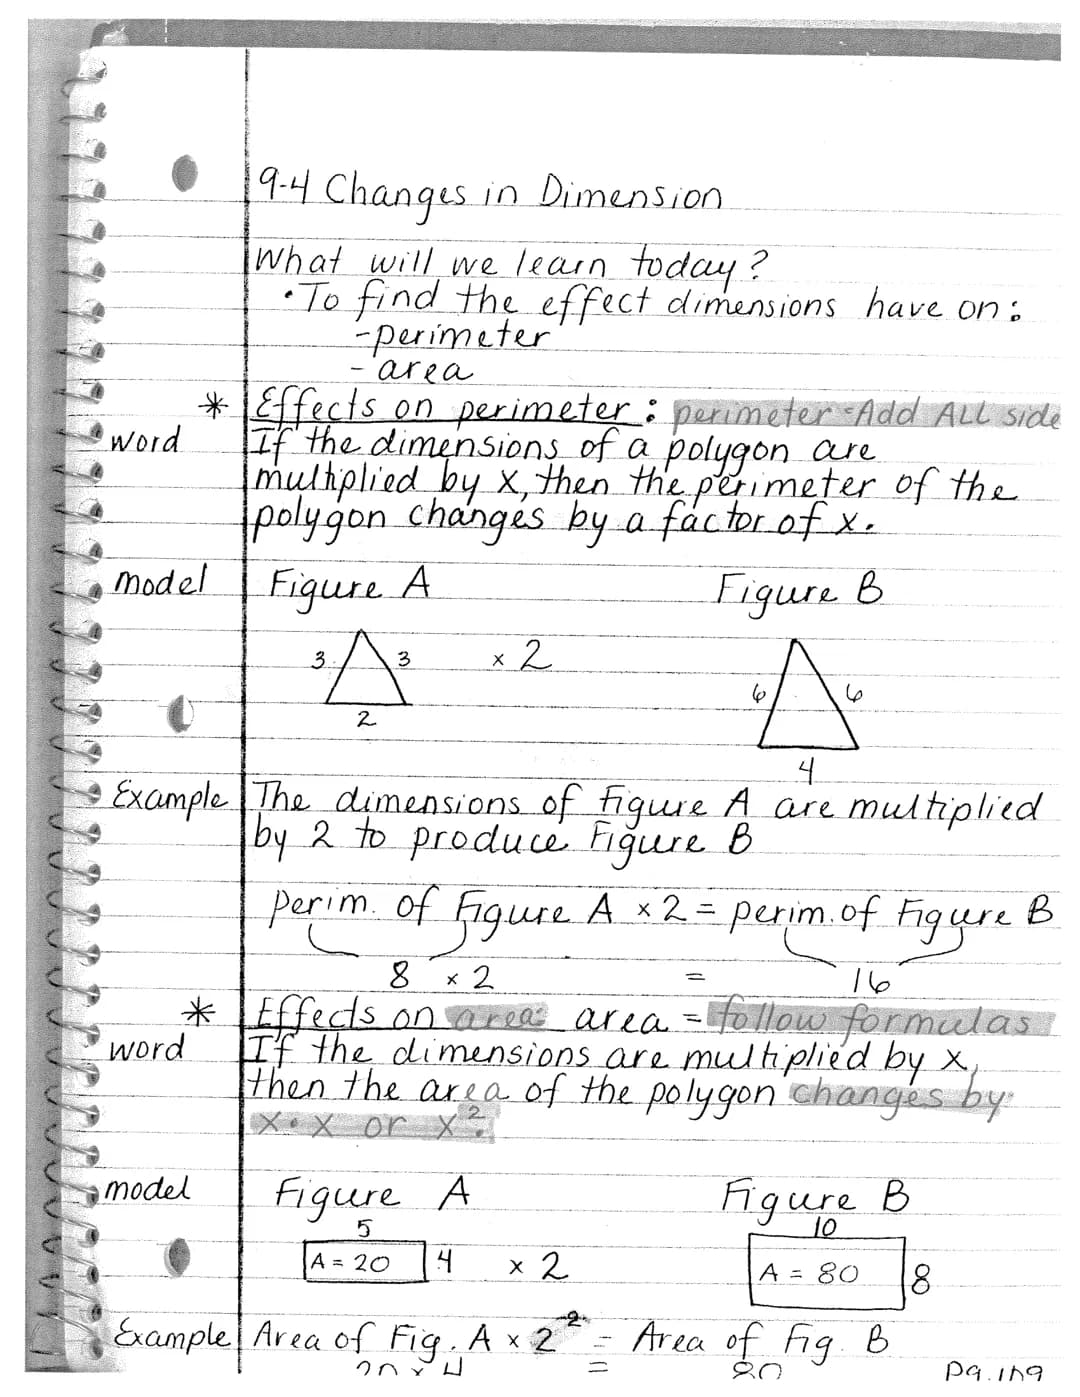 9-4 Changes in Dimension
What will we learn today?
• To find the effect dimensions have on:
- perimeter
- area
* Effects on perimeter: perimeter - Add ALL side
word If the dimensions of a polygon are
multiplied by x, then the perimeter of the
polygon changes by a factor of x.
model Figure A Figure B
3 3 x 2 6 6
2
4
Example The dimensions of Figure A are multiplied
by 2 to produce Figure B
Perim. of Figure A x 2 = perim. of Figure B
8 x 2 = 16
* Effects on area: area = follow formulas
word If the dimensions are multiplied by x,
then the area of the polygon changes by
x • x or x².
model Figure A Figure B
5 10
A = 20 4 x 2 A = 80 8
Example Area of Fig. A x 2² = Area of Fig. B
20 x 4 = 80 pg. 109